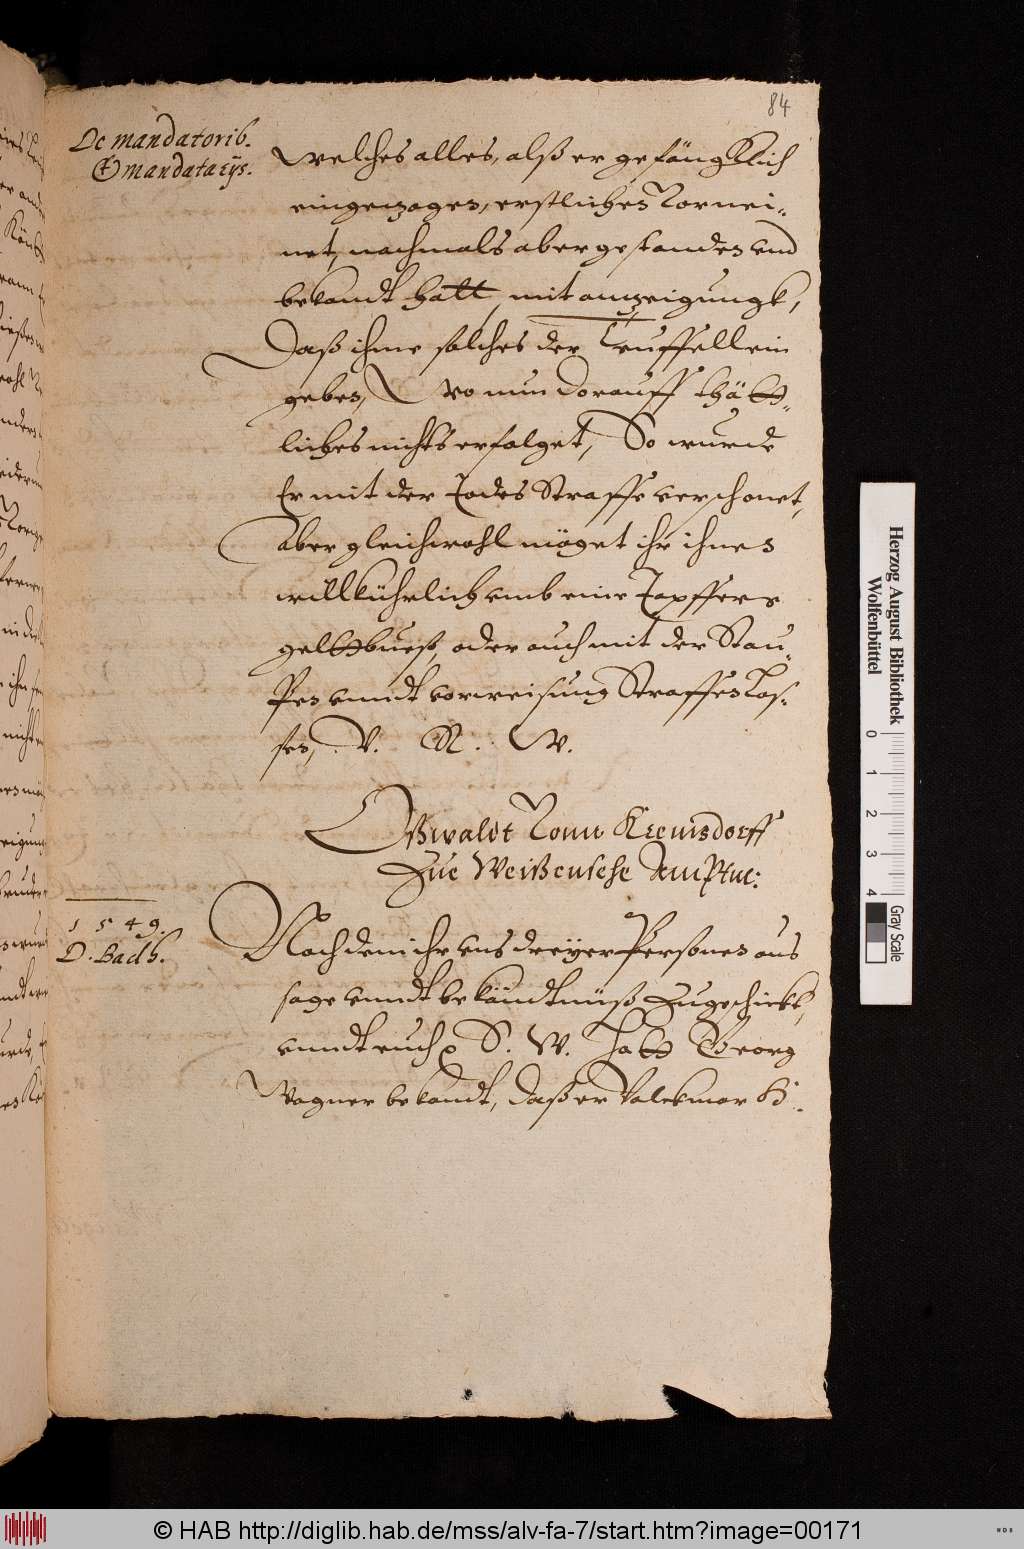 84
De mandatorib.
Et mandatarijs.
welches alles, alß er gefängklich
eingetzogen, erstlichen vornei-
net, nachmals aber gestanden vnd
bekandt hatt, mit anzeigungk,
Daß ihme solches der Teuffell ein
geben, Wo nun dorauff thätt-
liches nichts erfolget, So wurde
Er mit der Todes Straffe verschonet,
Aber gleichwohl möget ihr ihnen
willkührlich umb eine Tapffere
geltbueß, oder auch mit der Stau-
Pen vnndt vorweisung Straffen Las-
sen, V. R. W.
Oßwaldt Vonn Kromsdorff
Zue Weißensehe Amptm:
1549.
D. Bach.
Nach dem ihr vns dreyer Personen aus
sage vnndt bekändtnüß Zugeschickt,
vnndt euch S. W. Hatt Georg
Wagner bekandt, daß er Valckmar H
Herzog August Bibliothek
Wolfenbüttel
0 1 2 3 4
Gray Scale
© HAB http://diglib.hab.de/mss/alv-fa-7/start.htm?image=00171